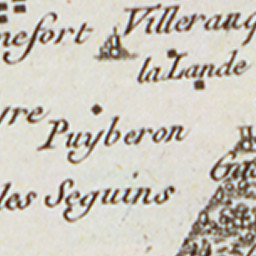 nefort Villeranq
la Lande
yre
Puyberon
les Seguins
Gas